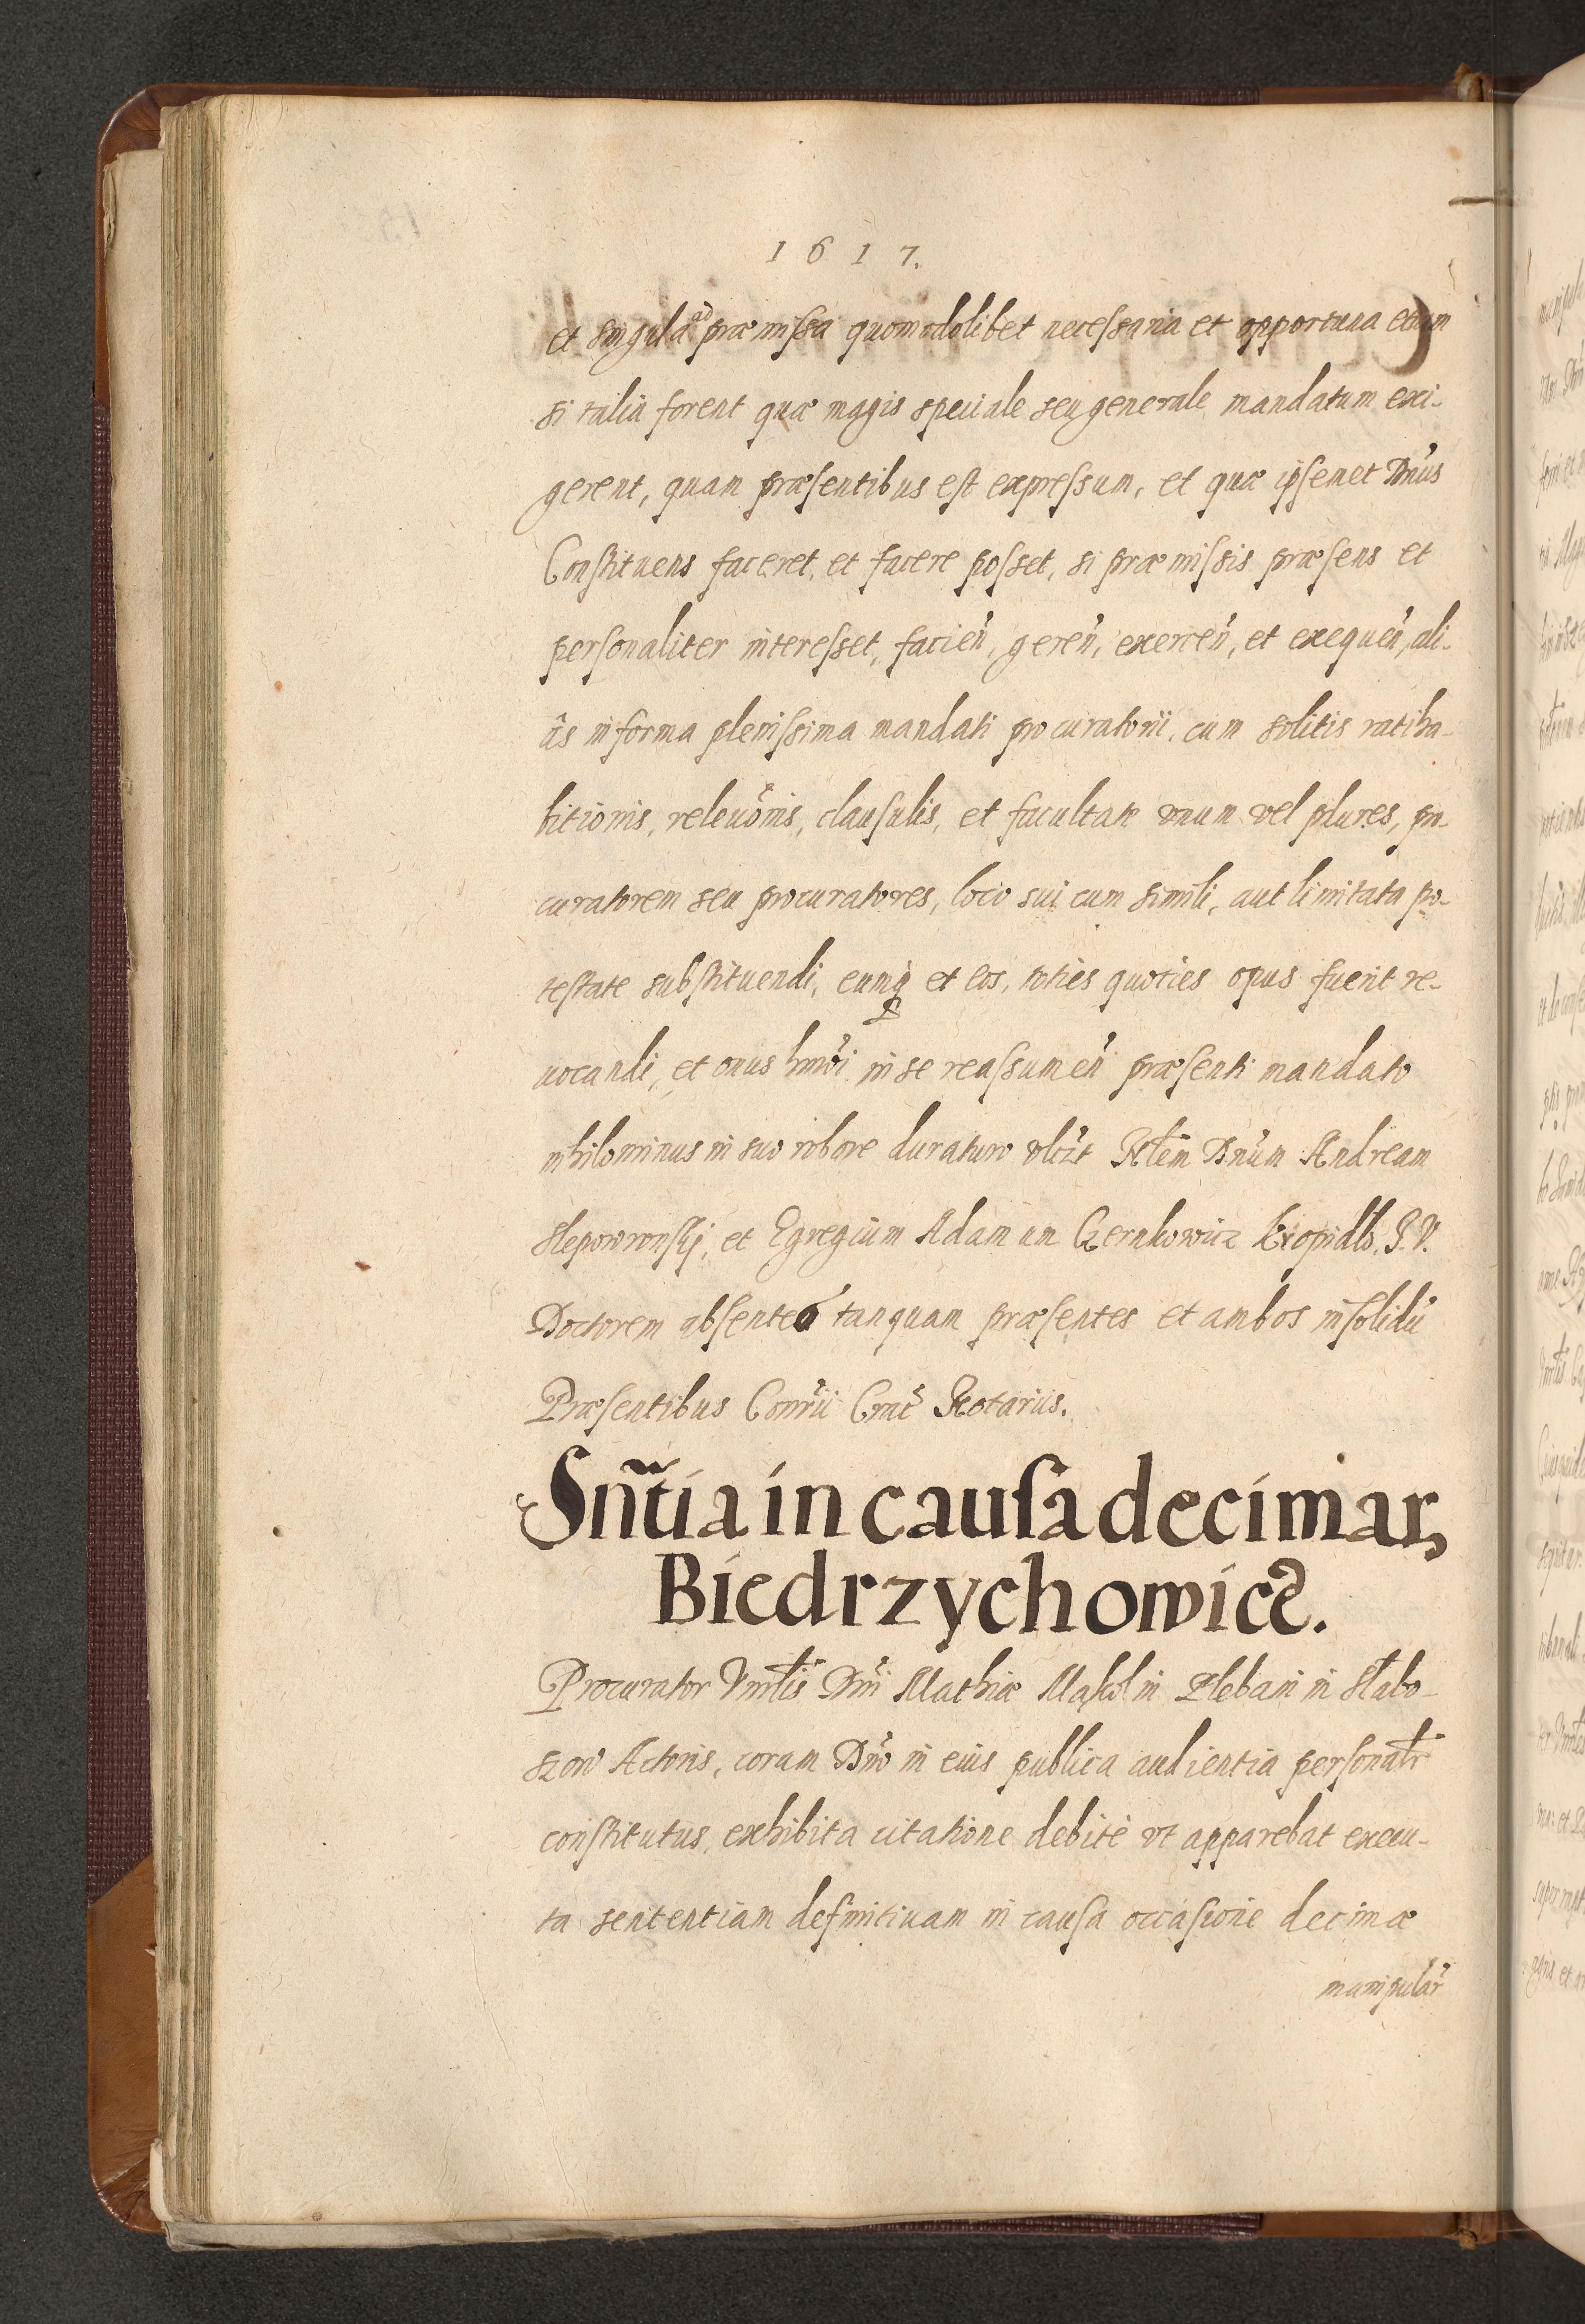 1617.
et singula ad præmissa quomodolibet necessaria et opportuna etiam
si talia forent quæ magis speciale seu generale mandatum exi-
gerent, quam præsentibus est expressum, et quæ ipsemet Dnus
Constituens faceret, et facere posset, si præmissis præsens et
personaliter interesset, facien, geren, exercen, et exequen, ali-
âs in forma plenissima mandati procuratorii, cum solitis ratiha-
bitionis, relevōnis, clausulis, et facultate vnum vel plures, pro-
curatorem seu procuratores, loco sui cum simili, aut limitata po-
testate substituendi, eumq et eos, toties quoties opus fuerit re-
uocandi, et onus hmōi in se reassumen præsenti mandato
nihilominus in suo robore duraturo Dnum Andream
Slepowronskj, et Egregium Adamum Czernkowicz Kropidlo, J. V.
Doctorem absentes tanquam præsentes et ambos insolidū
Præsentibus Conrii Crac Notariis.
Snt̃ia in causa decimar,
Biedrzychowic.
Procurator Dni Mathiæ Makol in Plebani in Slabo-
szow Actoris, coram Dno in eius publica audientia personalr
constitutus, exhibita citatione debitè vt apparebat execu-
ta sententiam definitiuam in causa occasione decimæ
manipular